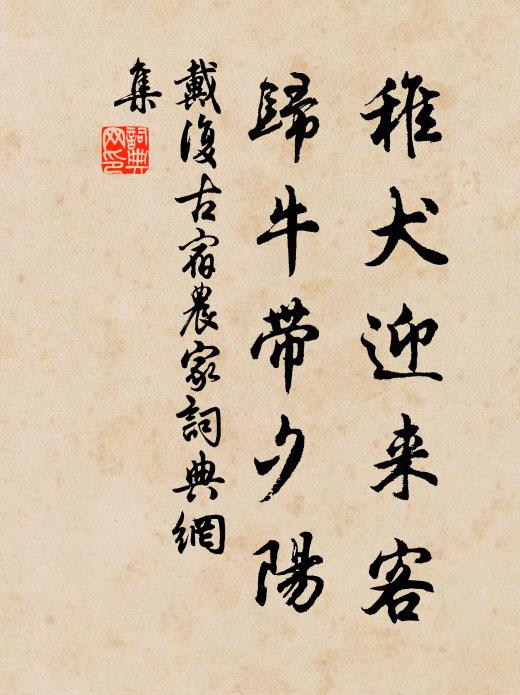 稚犬迎来客
歸牛帶夕陽
戴復古宿農家詞典網
集
詞典
网印